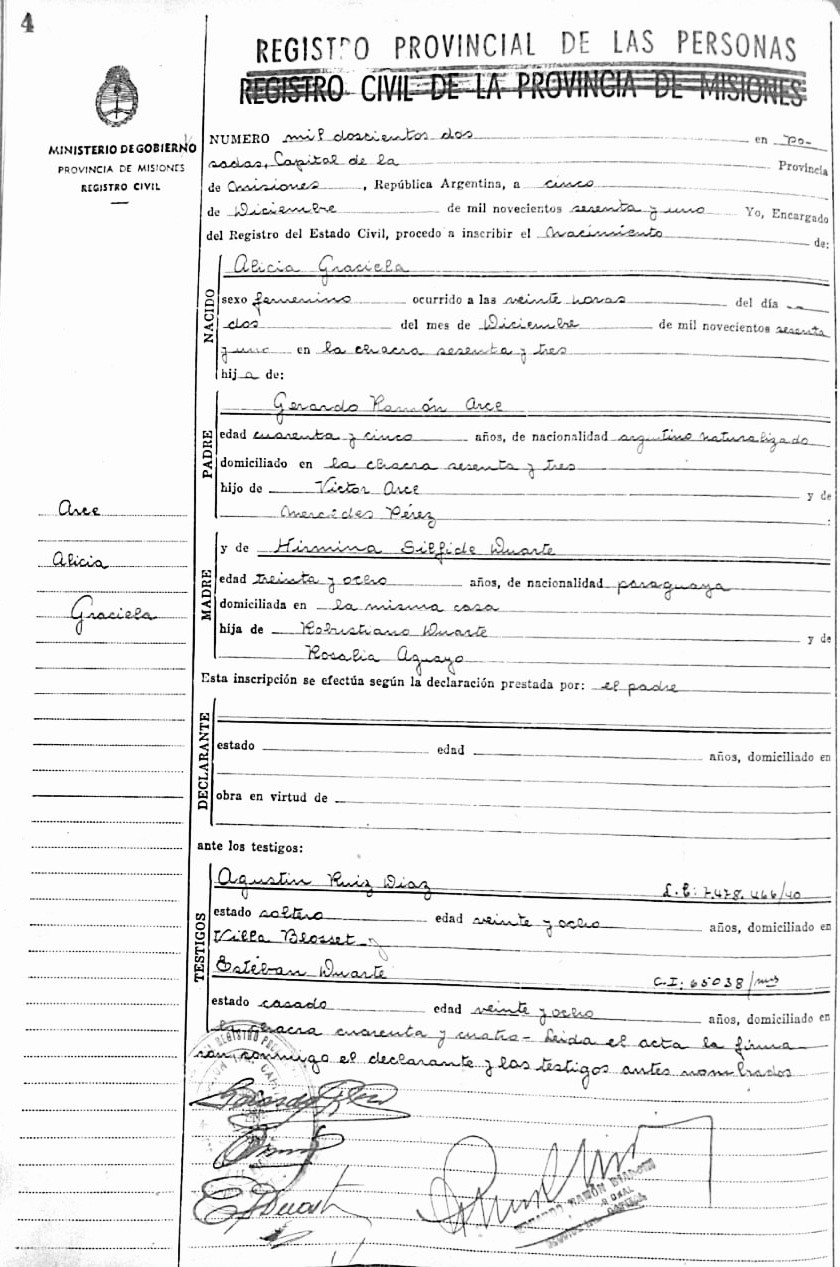 4
REGISTRO PROVINCIAL DE LAS PERSONAS
REGISTRO CIVIL DE LA PROVINCIA DE MISIONES
MINISTERIO DE GOBIERNO
PROVINCIA DE MISIONES
REGISTRO CIVIL
NUMERO mil doscientos dos en Po-
sadas, Capital de la Provincia
de Misiones, República Argentina, a cinco
de Diciembre de mil novecientos sesenta y uno Yo, Encargado
del Registro del Estado Civil, procedo a inscribir el Nacimiento de:
NACIDO
Alicia Graciela
sexo femenino ocurrido a las veinte horas del día
dos del mes de Diciembre de mil novecientos sesenta
y uno en la chacra sesenta y tres
hija de:
PADRE
Gerardo Ramón Arce
edad cuarenta y cinco años, de nacionalidad argentino naturalizado
domiciliado en la chacra sesenta y tres
hijo de Victor Arce y de
Mercedes Pérez :
Arce
Alicia
Graciela
MADRE
y de Hirmina Silfide Duarte
edad treinta y ocho años, de nacionalidad paraguaya
domiciliada en la misma casa
hija de Robustiano Duarte y de
Rosalia Aguayo
Esta inscripción se efectúa según la declaración prestada por: el padre
DECLARANTE
estado edad años, domiciliado en
obra en virtud de
ante los testigos:
TESTIGOS
Agustin Ruiz Diaz L.E: 7.478.466/40
estado soltero edad veinte y ocho años, domiciliado en
Villa Blosset y
Estéban Duarte C.I: 65038/mnes
estado casado edad veinte y ocho años, domiciliado en
la chacra cuarenta y cuatro - Leida el acta la firma-
ron, conmigo el declarante y los testigos antes nombrados
E Duarte
RAMÓN
CAPITAL